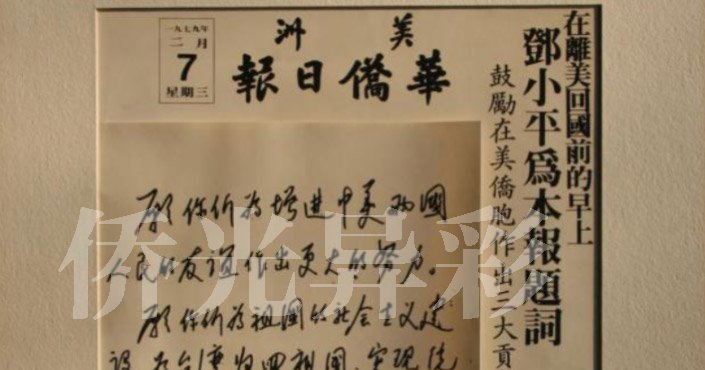 在離美回國前的早上
鄧小平爲本報題詞
鼓勵在美僑胞作出三大貢
美洲
華僑日報
一九七九年
二月
7
星期三
願你们为增进中美两國
人民的友谊作出更大的努力。
願你们为祖國的社会主义建
设、为台湾归回祖國、实现统
侨光异彩